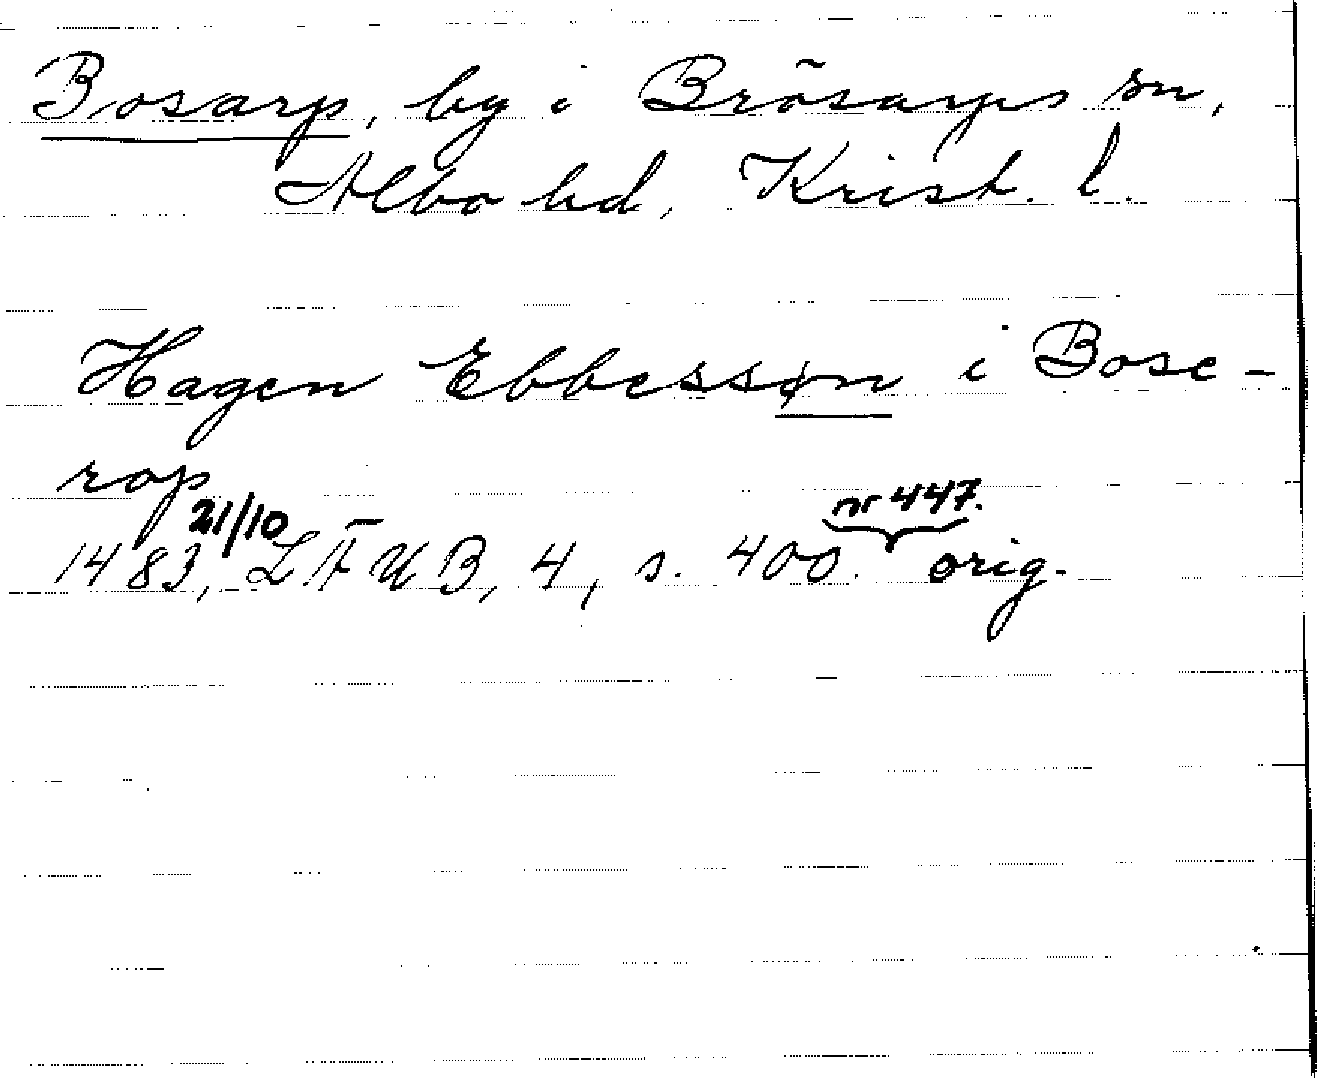 Bosarp, by i Brösarps sn,
Albo hd, Krist. l.
Hagen Ebbessøn i Bose-
rop
21/10 nr 447.
1483, LÄUB, 4, s. 400. orig.